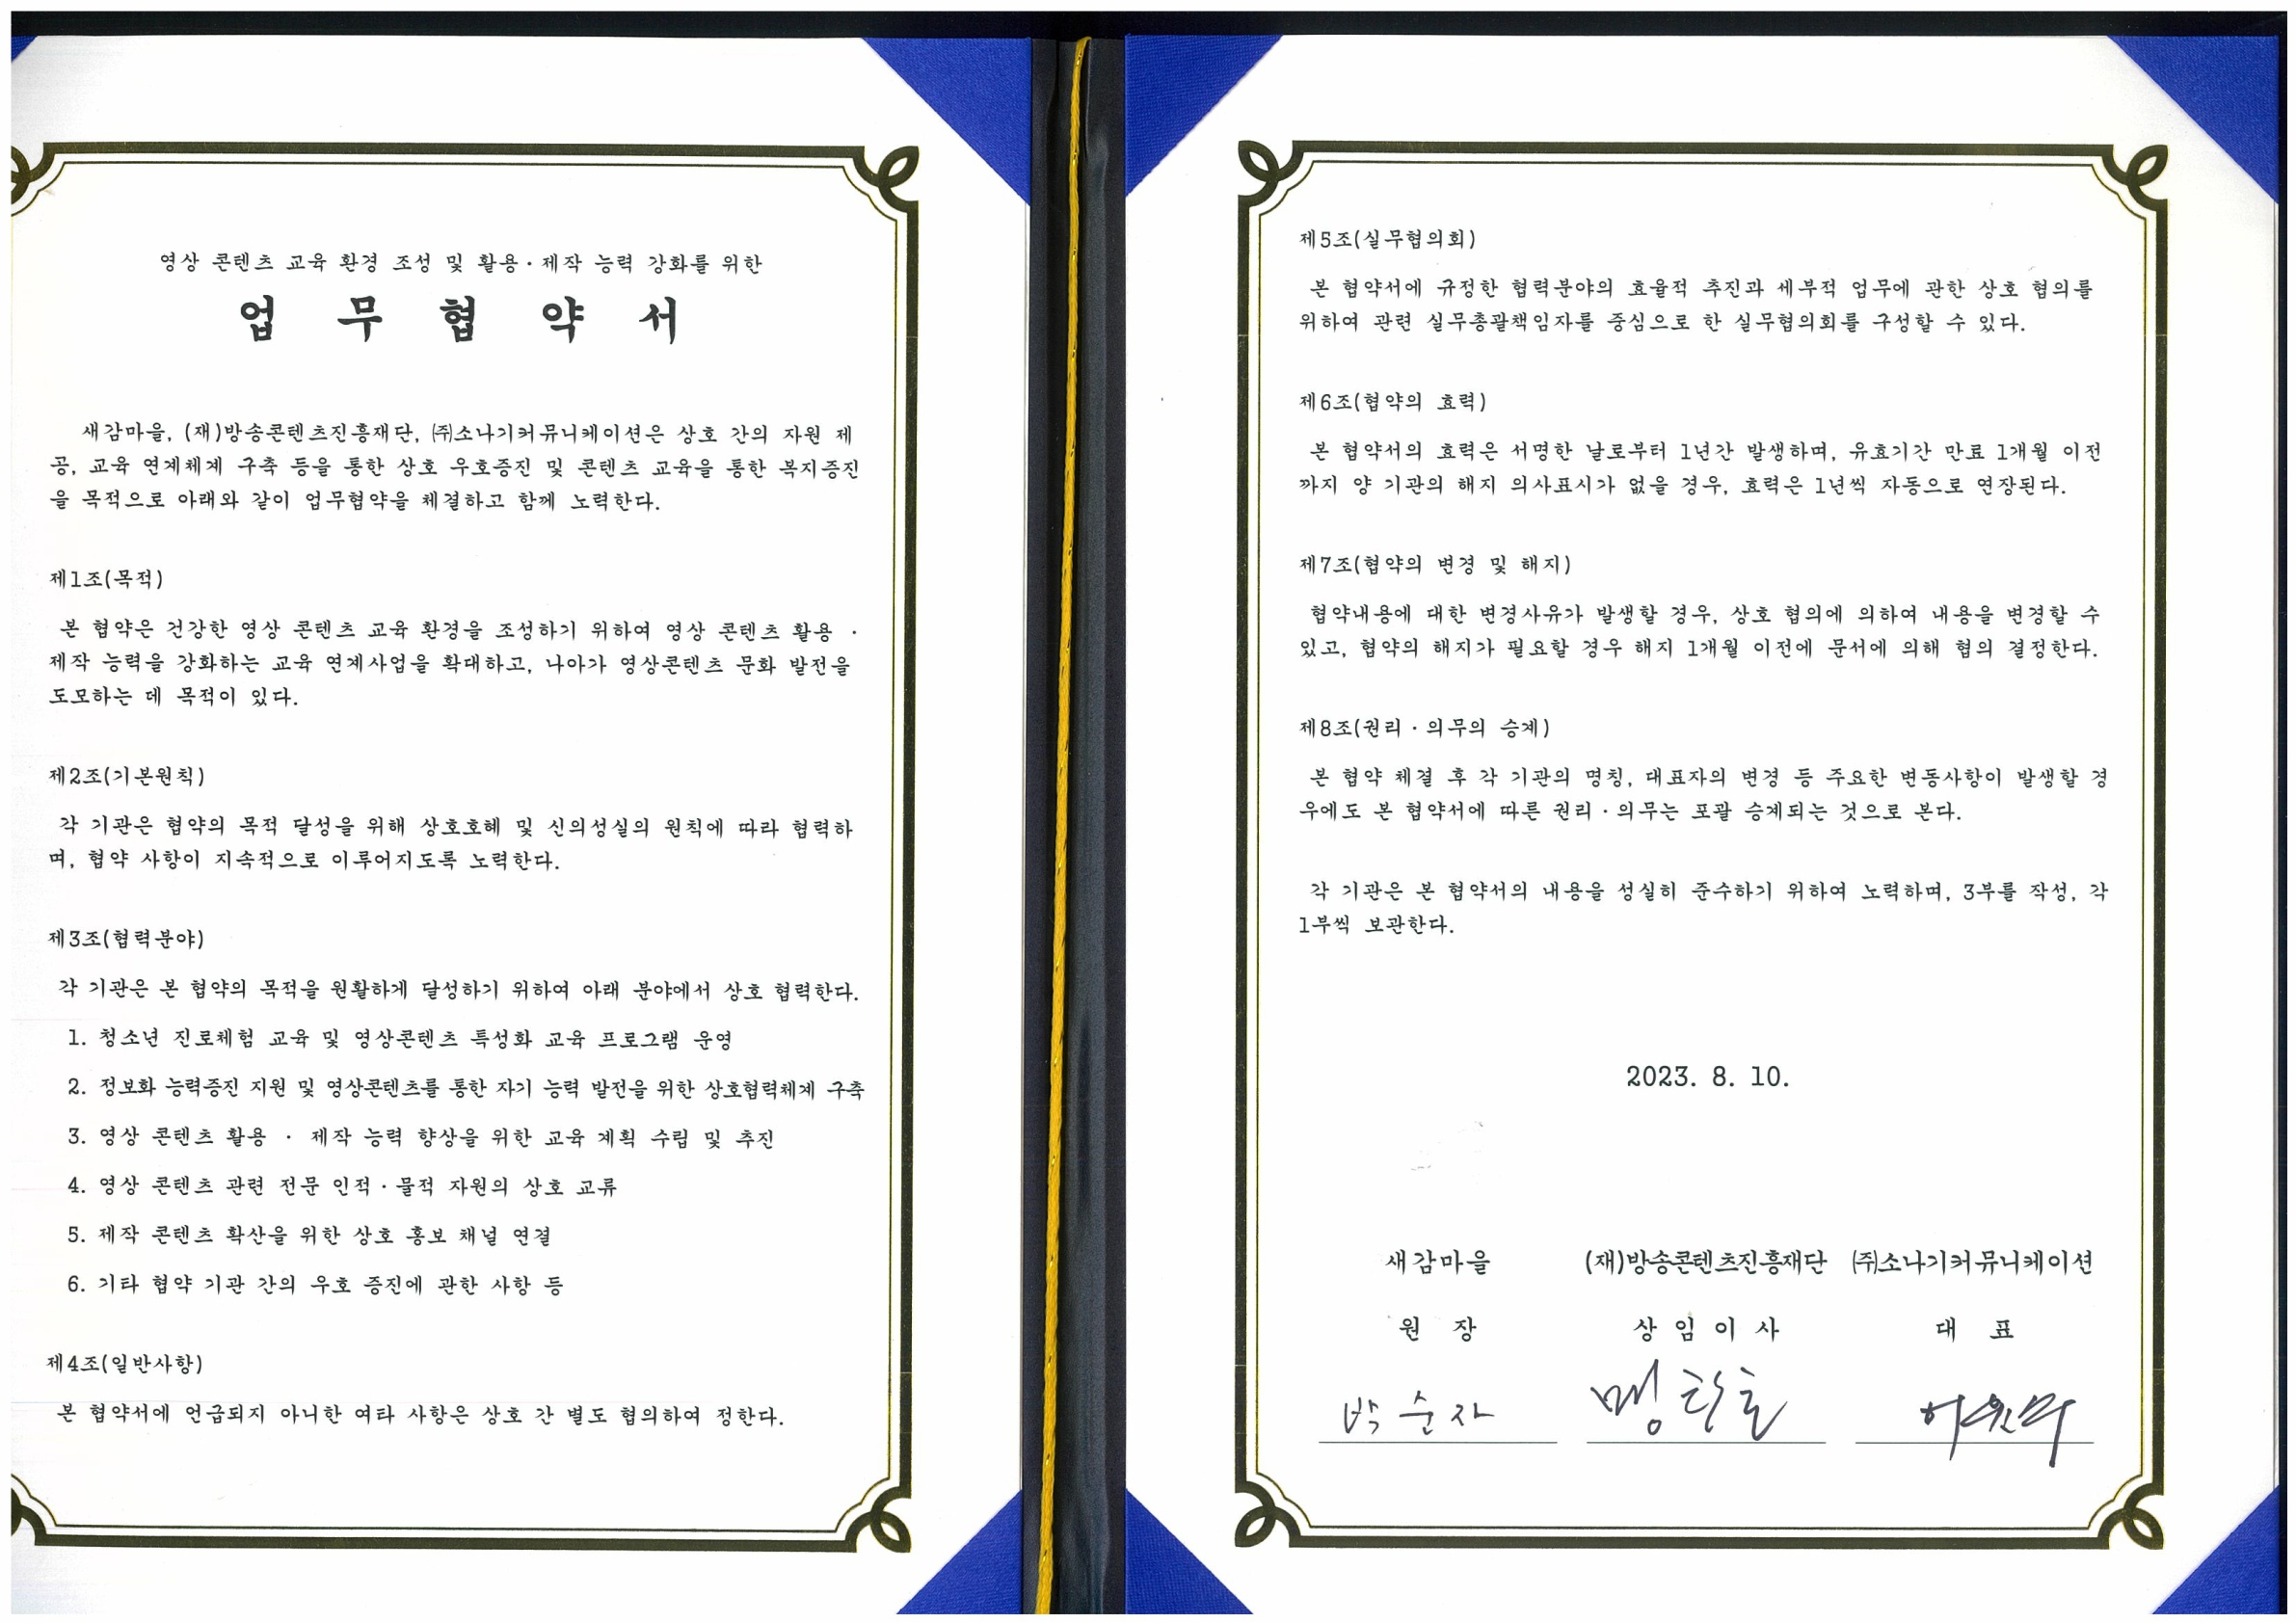 영상 콘텐츠 교육 환경 조성 및 활용·제작 능력 강화를 위한
업 무 협 약 서
새감마을, (재)방송콘텐츠진흥재단, ㈜소나기커뮤니케이션은 상호 간의 자원 제
공, 교육 연계체계 구축 등을 통한 상호 우호증진 및 콘텐츠 교육을 통한 복지증진
을 목적으로 아래와 같이 업무협약을 체결하고 함께 노력한다.
제1조(목적)
본 협약은 건강한 영상 콘텐츠 교육 환경을 조성하기 위하여 영상 콘텐츠 활용 ·
제작 능력을 강화하는 교육 연계사업을 확대하고, 나아가 영상콘텐츠 문화 발전을
도모하는 데 목적이 있다.
제2조(기본원칙)
각 기관은 협약의 목적 달성을 위해 상호호혜 및 신의성실의 원칙에 따라 협력하
며, 협약 사항이 지속적으로 이루어지도록 노력한다.
제3조(협력분야)
각 기관은 본 협약의 목적을 원활하게 달성하기 위하여 아래 분야에서 상호 협력한다.
1. 청소년 진로체험 교육 및 영상콘텐츠 특성화 교육 프로그램 운영
2. 정보화 능력증진 지원 및 영상콘텐츠를 통한 자기 능력 발전을 위한 상호협력체계 구축
3. 영상 콘텐츠 활용 · 제작 능력 향상을 위한 교육 계획 수립 및 추진
4. 영상 콘텐츠 관련 전문 인적·물적 자원의 상호 교류
5. 제작 콘텐츠 확산을 위한 상호 홍보 채널 연결
6. 기타 협약 기관 간의 우호 증진에 관한 사항 등
제4조(일반사항)
본 협약서에 언급되지 아니한 여타 사항은 상호 간 별도 협의하여 정한다.
제5조(실무협의회)
본 협약서에 규정한 협력분야의 효율적 추진과 세부적 업무에 관한 상호 협의를
위하여 관련 실무총괄책임자를 중심으로 한 실무협의회를 구성할 수 있다.
제6조(협약의 효력)
본 협약서의 효력은 서명한 날로부터 1년간 발생하며, 유효기간 만료 1개월 이전
까지 양 기관의 해지 의사표시가 없을 경우, 효력은 1년씩 자동으로 연장된다.
제7조(협약의 변경 및 해지)
협약내용에 대한 변경사유가 발생할 경우, 상호 협의에 의하여 내용을 변경할 수
있고, 협약의 해지가 필요할 경우 해지 1개월 이전에 문서에 의해 협의 결정한다.
제8조(권리 · 의무의 승계)
본 협약 체결 후 각 기관의 명칭, 대표자의 변경 등 주요한 변동사항이 발생할 경
우에도 본 협약서에 따른 권리 · 의무는 포괄 승계되는 것으로 본다.
각 기관은 본 협약서의 내용을 성실히 준수하기 위하여 노력하며, 3부를 작성, 각
1부씩 보관한다.
2023. 8. 10.
새감마을 (재)방송콘텐츠진흥재단 ㈜소나기커뮤니케이션
원 장 상 임 이 사 대 표
박 순 자